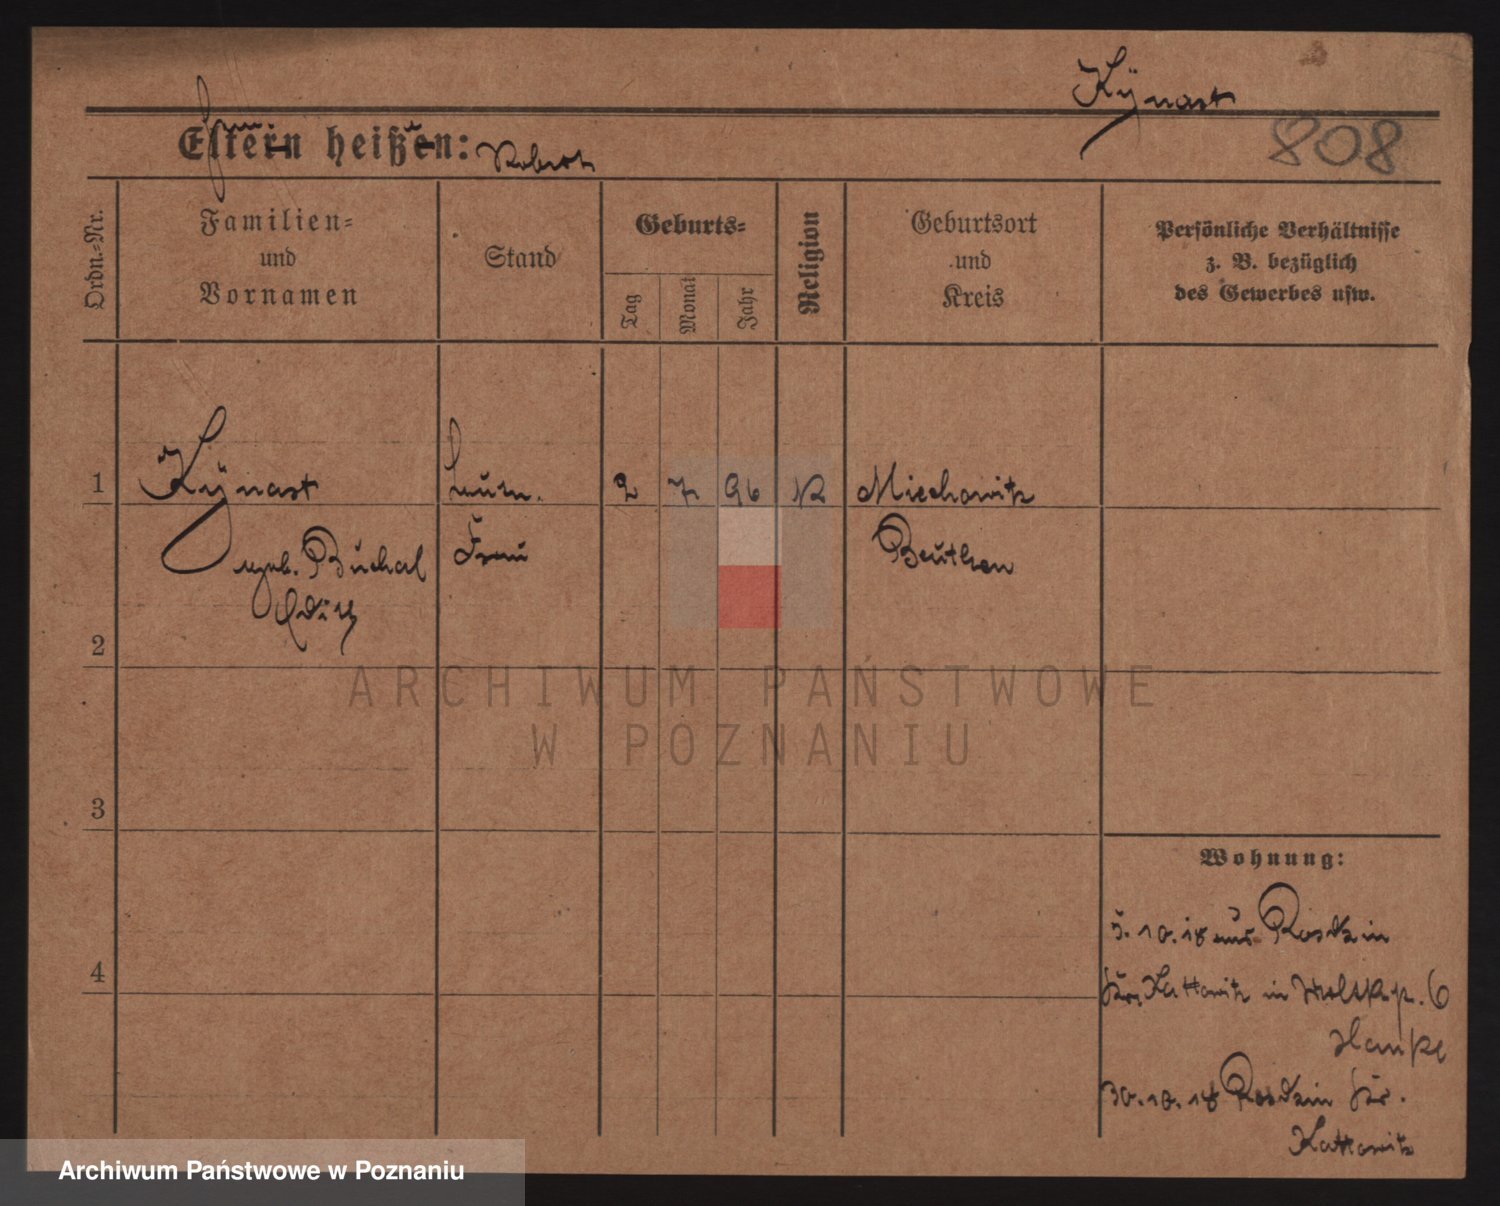 Kÿnast
808
Eltern heißen: Robert
Ordn.-Nr.
Familien-
und
Vornamen
Stand
Geburts-
Tag
Monat
Jahr
Religion
Geburtsort
und
Kreis
Persönliche Verhältnisse
z. B. bezüglich
des Gewerbes usw.
1
Kÿnast
2 7 96 K Miechowitz
geb. Buchal
Frau
Beuthen
2
ARCHIWUM PAŃSTWOWE
W POZNANIU
3
Wohnung:
5.10.18 aus Rosdzin
4
Kr. Kattowitz in 6
30.10.18 Rosdzin Kr.
Kattowitz
Archiwum Państwowe w Poznaniu